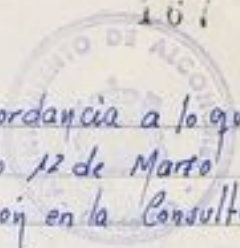 167
MIENTO DE ALCO
ordancia a lo qu
o 12 de Marzo
ón en la Consult